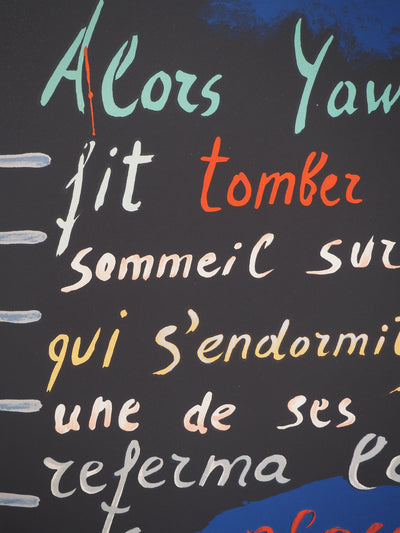 Alors Yaw
fit tomber
sommeil sur
qui s'endormit
une de ses
referma la